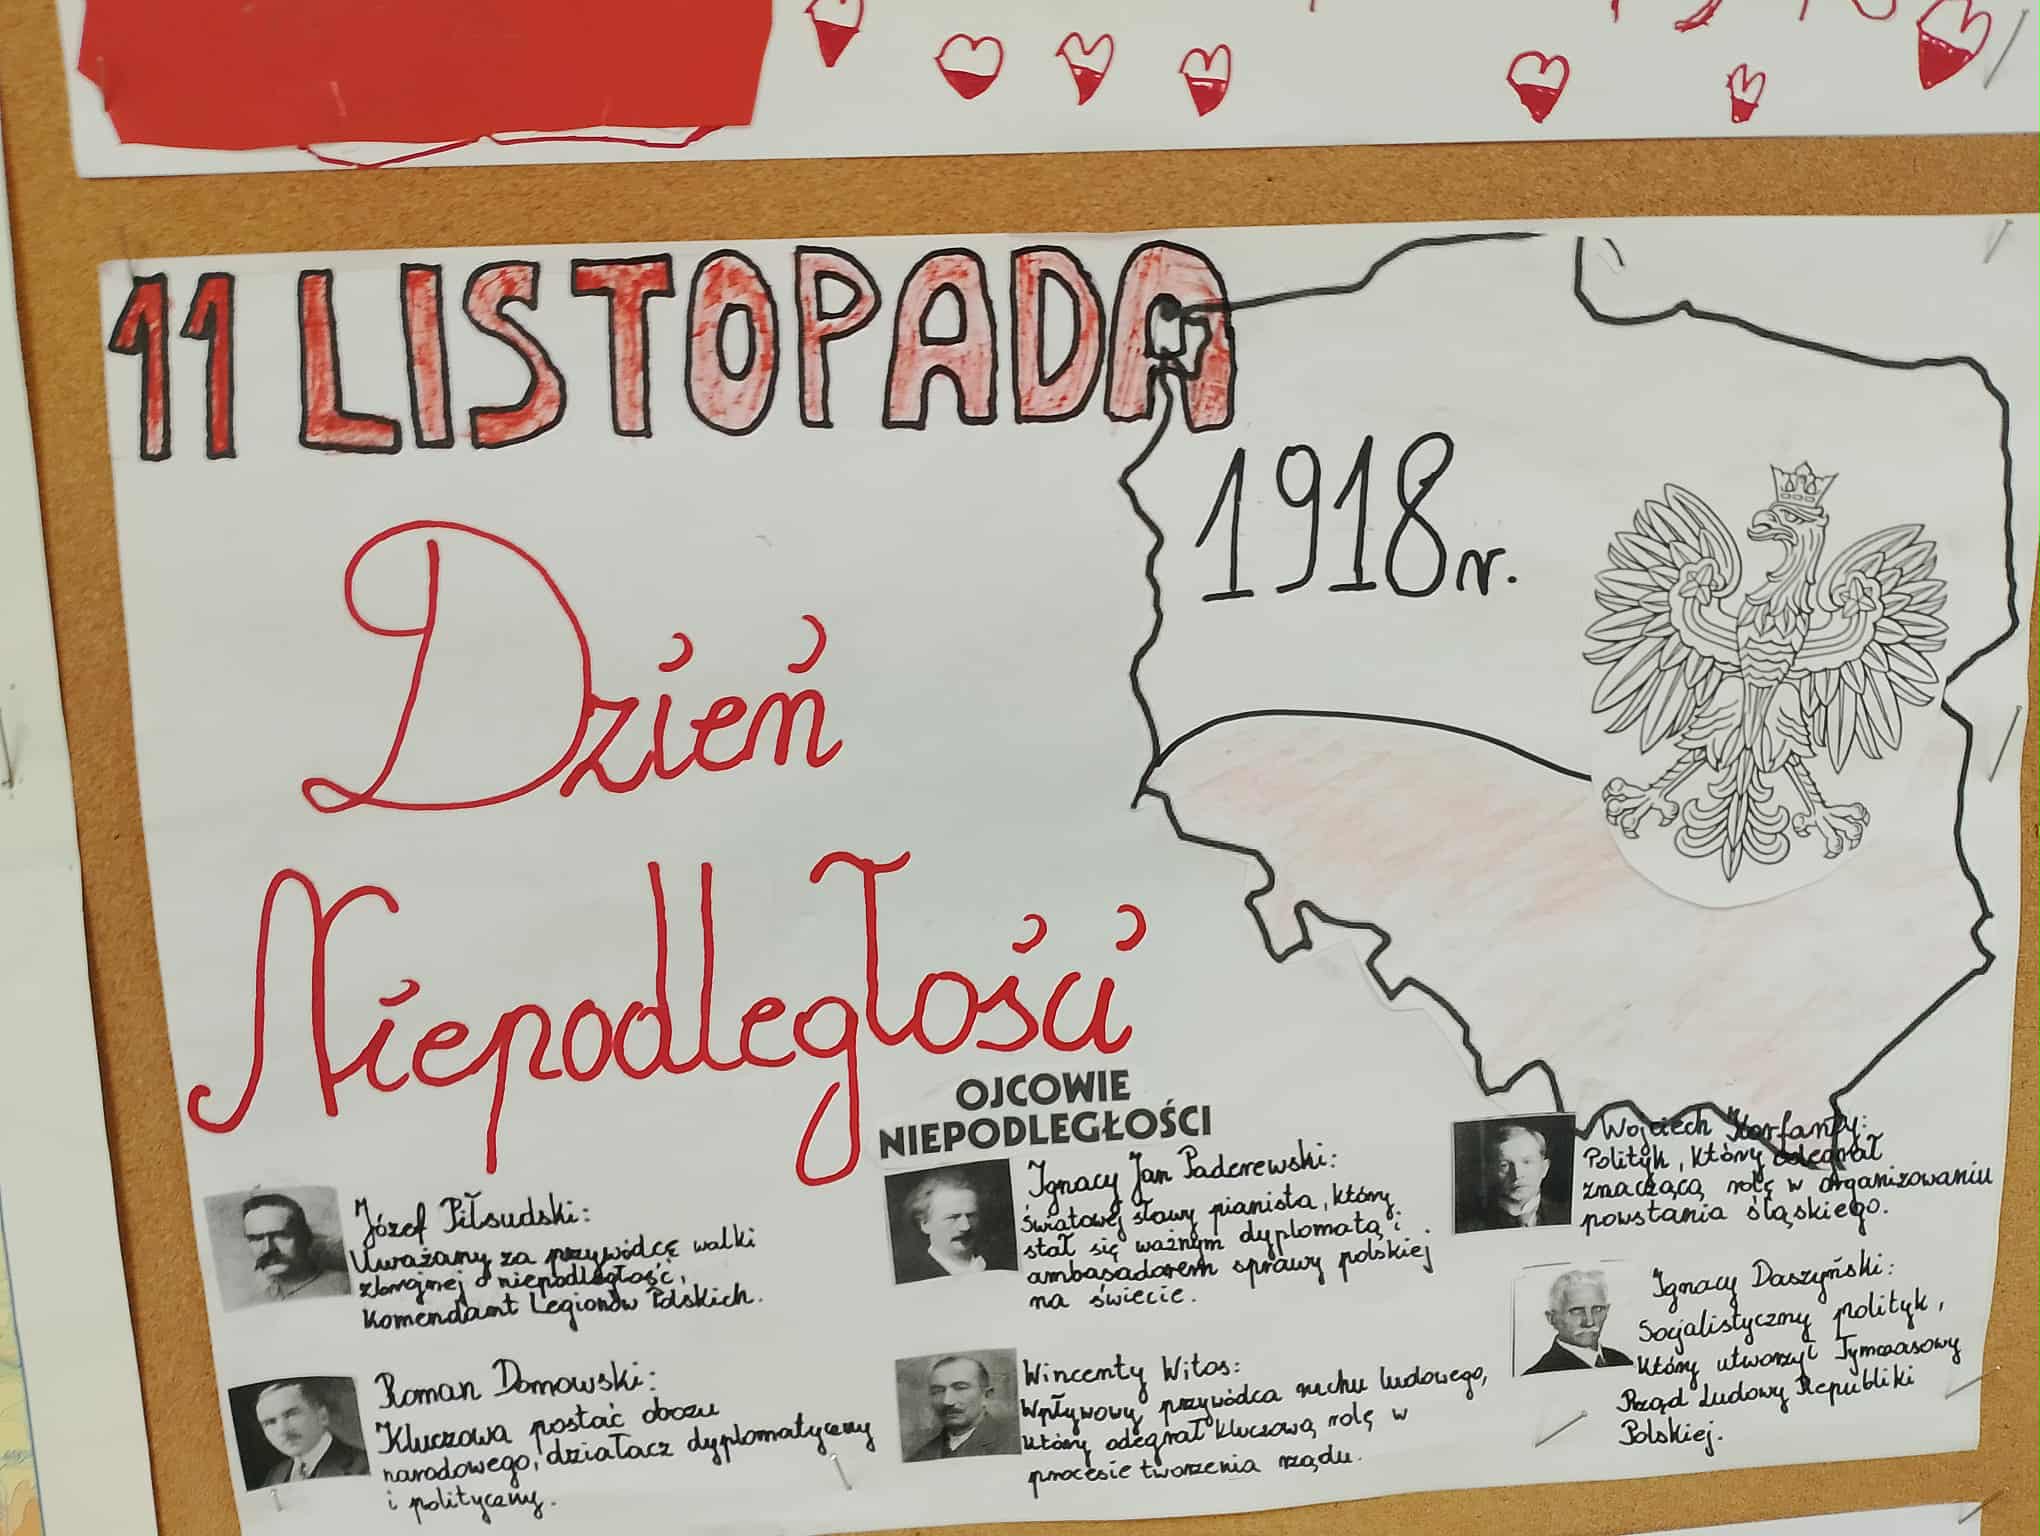 11 LISTOPADA
1918 r.
Dzień
Niepodległości
OJCOWIE
NIEPODLEGŁOŚCI
Józef Piłsudski:
Uważany za przywódcę walki
zbrojnej o niepodległość,
Komendant Legionów Polskich.
Roman Dmowski:
Kluczowa postać obozu
narodowego, działacz dyplomatyczny
i polityczny.
Ignacy Jan Paderewski:
Światowej sławy pianista, który
stał się ważnym dyplomatą i
ambasadorem sprawy polskiej
na świecie.
Wincenty Witos:
Wpływowy przywódca ruchu ludowego,
który odegrał kluczową rolę w
procesie tworzenia rządu.
Wojciech Korfanty:
Polityk, który odegrał
znaczącą rolę w organizowaniu
powstania śląskiego.
Ignacy Daszyński:
Socjalistyczny polityk,
który utworzył Tymczasowy
Rząd Ludowy Republiki
Polskiej.